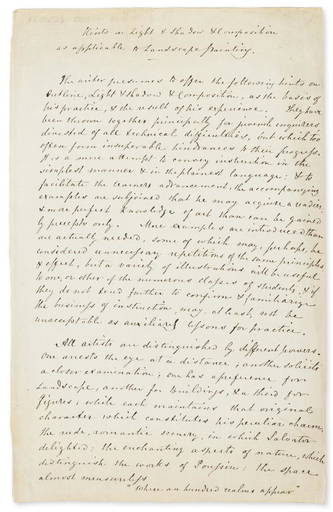 Hints on Light & Shadow & Composition
as applicable to Landscape Painting.
The writer presumes to offer the following hints on
Outline, Light & Shadow & Composition, as the basis of
his practice, & the result of his experience. They have
been thrown together principally for juvenile enquirers
divested of all technical difficulties, but which too
often form insuperable hindrances to their progress.
It is a mere attempt to convey instruction in the
simplest manner & in the plainest language: & to
facilitate the learners advancement, the accompanying
examples are subjoined that he may acquire a readier
& more perfect knowledge of art than can be gained
by precepts only. More examples are introduced than
are actually needed, some of which may, perhaps, be
considered unnecessary repetitions of the same principles
& effect, but a variety of illustrations will be useful
to one, or other of the numerous classes of students, & if
they do not tend further to confirm & familiarize
the business of instruction, may, at least, not be
unacceptable as auxiliary lessons for practice.
All artists are distinguished by different powers.
One arrests the eye at a distance; another solicits
a closer examination; one has a preference for
Landscape, another for buildings, & a third for
figures; while each maintains that original
character which constitutes his peculiar charm.
The rude, romantic scenery, in which Salvator
delighted: the enchanting aspects of nature, which
distinguish the works of Poussin: the space
almost measureless
"Where an hundred realms appear"